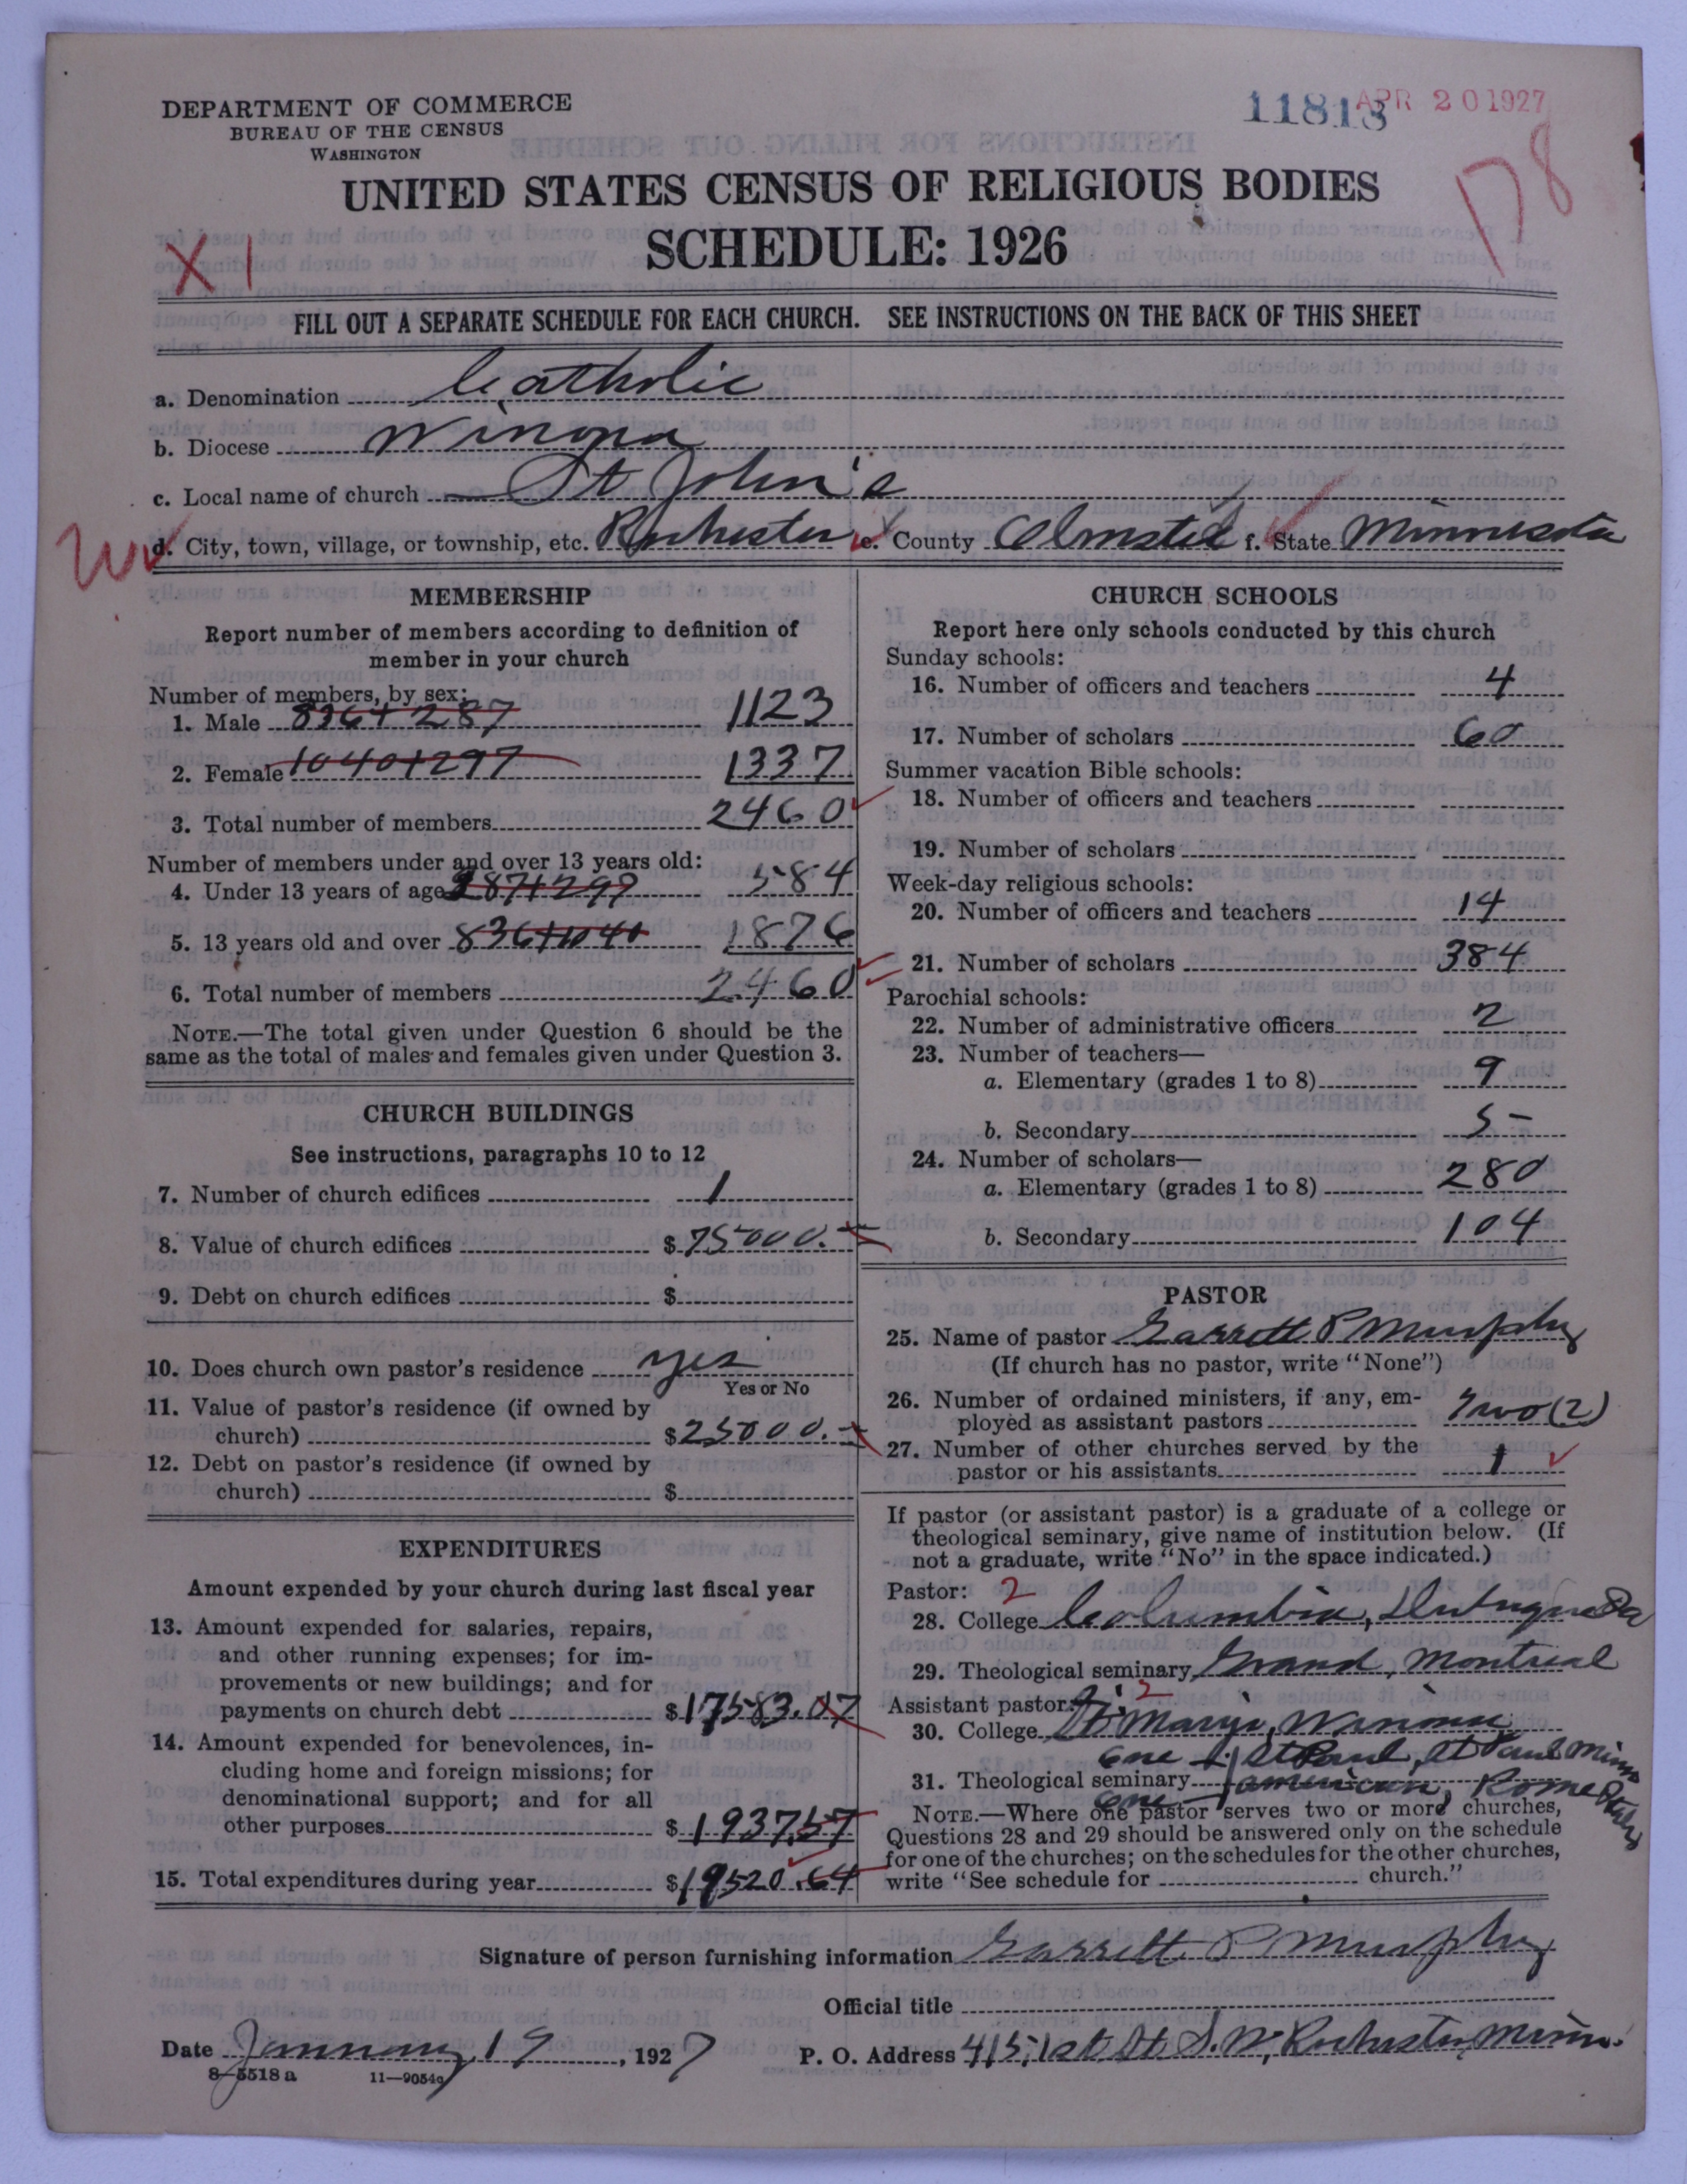 DEPARTMENT OF COMMERCE
BUREAU OF THE CENSUS
WASHINGTON
11813 APR 20 1927
178
UNITED STATES CENSUS OF RELIGIOUS BODIES
SCHEDULE: 1926
X1
FILL OUT A SEPARATE SCHEDULE FOR EACH CHURCH. SEE INSTRUCTIONS ON THE BACK OF THIS SHEET
a. Denomination Catholic
b. Diocese Winona
c. Local name of church St John's
d. City, town, village, or township, etc. Rochester e. County Olmsted f. State Minnesota
MEMBERSHIP
Report number of members according to definition of
member in your church
Number of members, by sex:
1. Male 836+287 1123
2. Female 1040+297 1337
3. Total number of members 2460
Number of members under and over 13 years old:
4. Under 13 years of age 287+297 584
5. 13 years old and over 836+1040 1876
6. Total number of members 2460
NOTE.—The total given under Question 6 should be the
same as the total of males and females given under Question 3.
CHURCH BUILDINGS
See instructions, paragraphs 10 to 12
7. Number of church edifices 1
8. Value of church edifices $75000.
9. Debt on church edifices $
10. Does church own pastor's residence yes
Yes or No
11. Value of pastor's residence (if owned by
church) $25000.
12. Debt on pastor's residence (if owned by
church) $
EXPENDITURES
Amount expended by your church during last fiscal year
13. Amount expended for salaries, repairs,
and other running expenses; for im-
provements or new buildings; and for
payments on church debt $17583.07
14. Amount expended for benevolences, in-
cluding home and foreign missions; for
denominational support; and for all
other purposes $1937.57
15. Total expenditures during year $19520.64
CHURCH SCHOOLS
Report here only schools conducted by this church
Sunday schools:
16. Number of officers and teachers 4
17. Number of scholars 60
Summer vacation Bible schools:
18. Number of officers and teachers
19. Number of scholars
Week-day religious schools:
20. Number of officers and teachers 14
21. Number of scholars 384
Parochial schools:
22. Number of administrative officers 2
23. Number of teachers—
a. Elementary (grades 1 to 8) 9
b. Secondary 5
24. Number of scholars—
a. Elementary (grades 1 to 8) 280
b. Secondary 104
PASTOR
25. Name of pastor Garrett P Murphy
(If church has no pastor, write "None")
26. Number of ordained ministers, if any, em-
ployed as assistant pastors Two (2)
27. Number of other churches served by the
pastor or his assistants 1
If pastor (or assistant pastor) is a graduate of a college or
theological seminary, give name of institution below. (If
not a graduate, write "No" in the space indicated.)
Pastor: 2
28. College Columbia, Dubuque Ia
29. Theological seminary Grand, Montreal
Assistant pastor: 2
30. College St. Mary's, Winona
One - St Paul, St Paul Minn
31. Theological seminary
One - American, Rome Italy
NOTE.—Where one pastor serves two or more churches,
Questions 28 and 29 should be answered only on the schedule
for one of the churches; on the schedules for the other churches,
write "See schedule for church."
Signature of person furnishing information Garrett P Murphy
Official title
Date January 19, 1927
P. O. Address 415, 1st St. S.W, Rochester, Minn.
8-5518 a 11—9054a